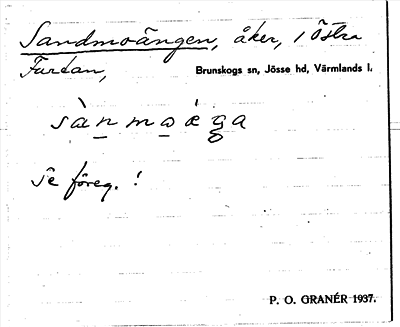 Sandmoängen, åker, i Östra
Furtan,
Brunskogs sn, Jösse hd, Värmlands l.
se föreg. !
P. O. GRANÉR 1937.